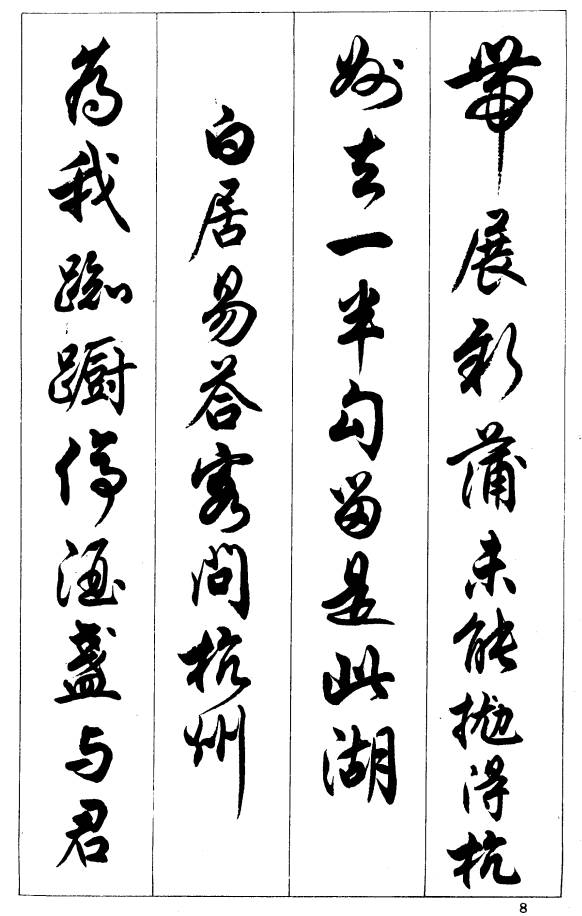 带展新蒲未能抛得杭
州去一半勾留是此湖
白居易答客问杭州
为我踟蹰停酒盏与君
8